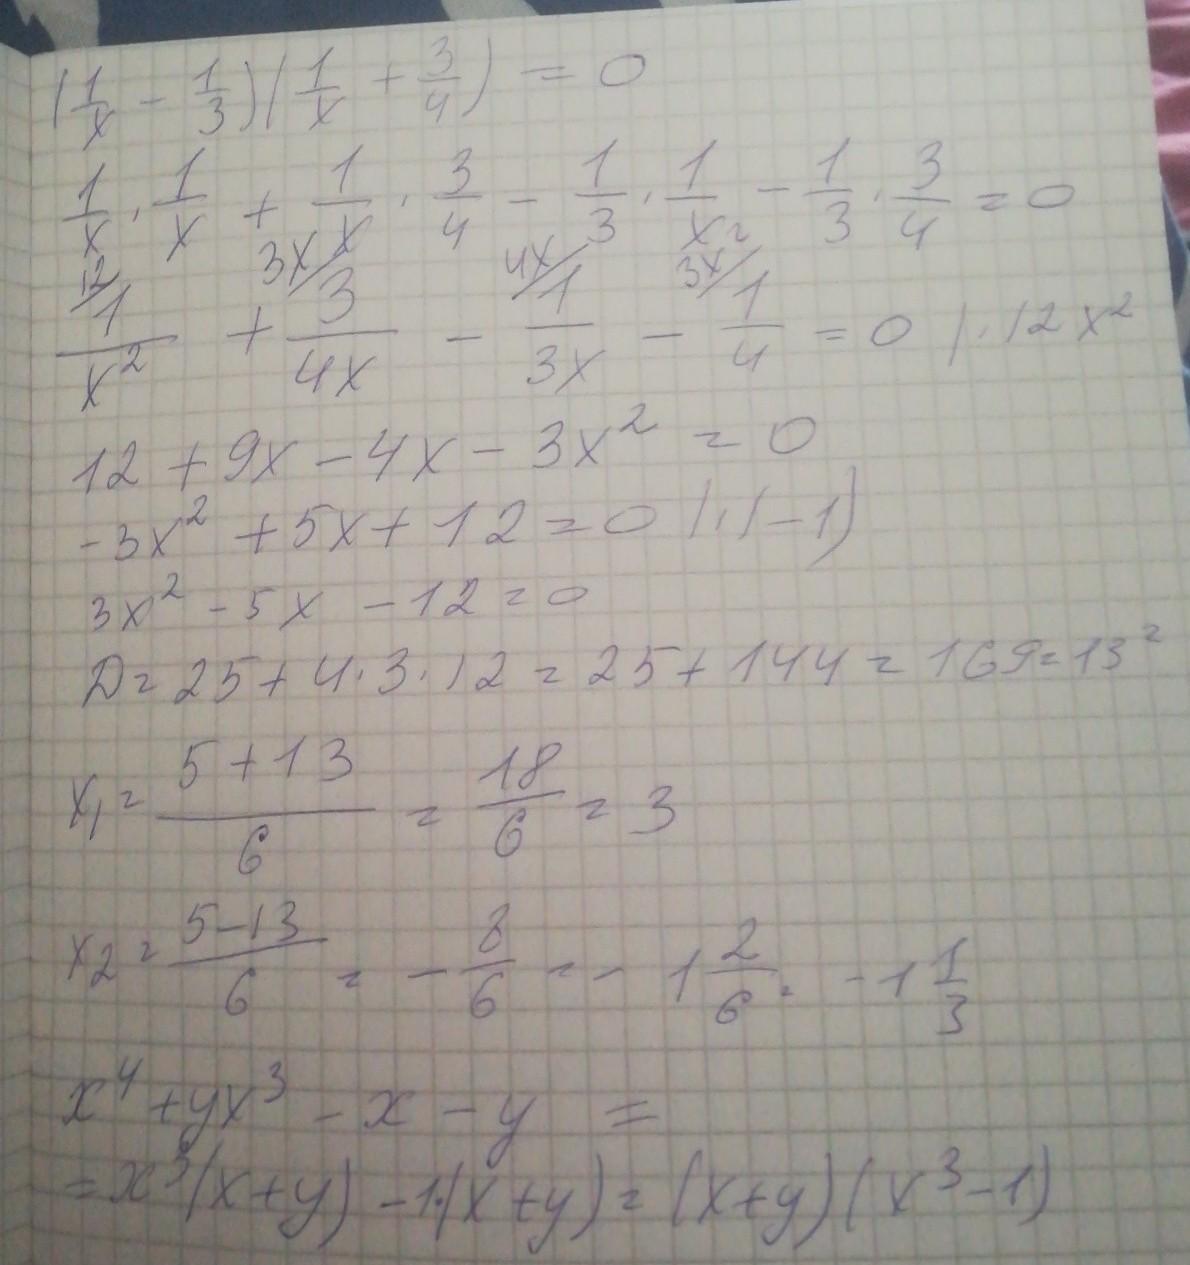 (1/x - 1/3)(1/x + 3/4) = 0
1/x · 1/x + 1/x · 3/4 - 1/3 · 1/x - 1/3 · 3/4 = 0
12/ 3x/ 4x/ 3x²/
1/x² + 3/4x - 1/3x - 1/4 = 0 | · 12x²
12 + 9x - 4x - 3x² = 0
-3x² + 5x + 12 = 0 | · (-1)
3x² - 5x - 12 = 0
D = 25 + 4 · 3 · 12 = 25 + 144 = 169 = 13²
x₁ = (5+13)/6 = 18/6 = 3
x₂ = (5-13)/6 = - 8/6 = - 1 2/6 = -1 1/3
x⁴ + yx³ - x - y =
= x³(x+y) - 1·(x+y) = (x+y)(x³-1)